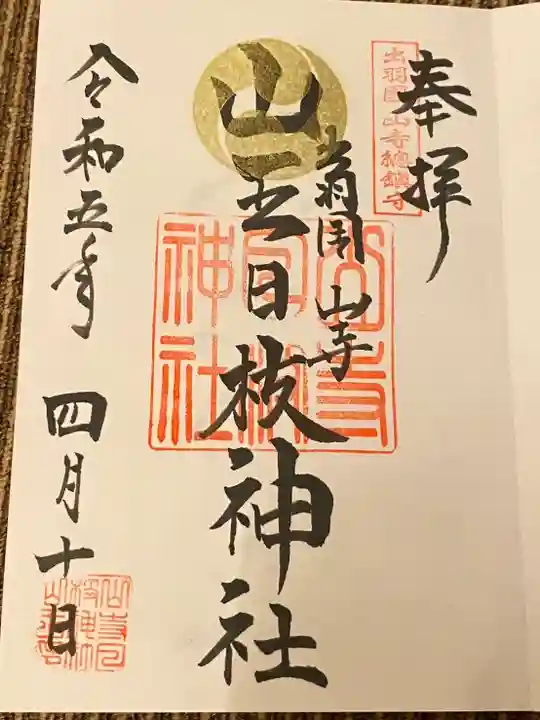 奉拝
出羽国山寺総鎮守
出羽国 山寺
山王日枝神社
山寺日枝神社
令和五年 四月十日